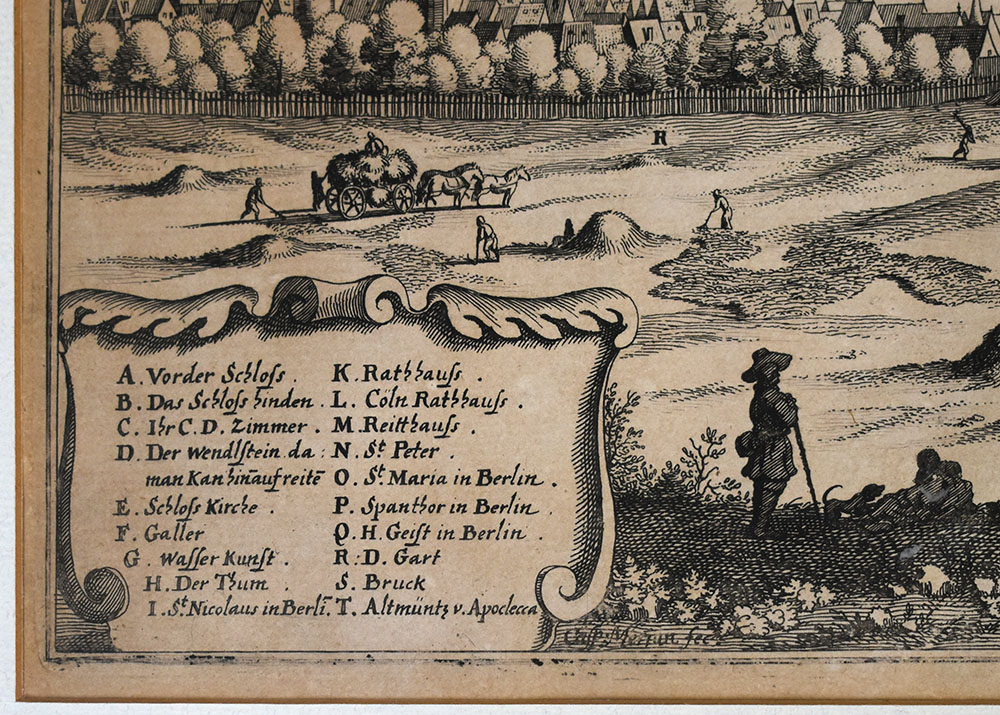 A. Vorder Schloſs.
B. Das Schloſs hinden.
C. Ihr C. D. Zimmer.
D. Der Wendlſtein da:
man Kan hin̄auf reitē
E. Schloſs Kirche.
F. Galler
G. Waſſer Kunſt.
H. Der Thum.
I. St. Nicolaus in Berlī.
K. Rathhauſs.
L. Cöln Rathhauſs.
M. Reitthauſs.
N. St. Peter.
O. St. Maria in Berlin.
P. Spanthor in Berlin.
Q. H. Geiſt in Berlin.
R: D. Gart
S. Bruck
T. Altmüntz v. Apoclecca
R
Merian fec